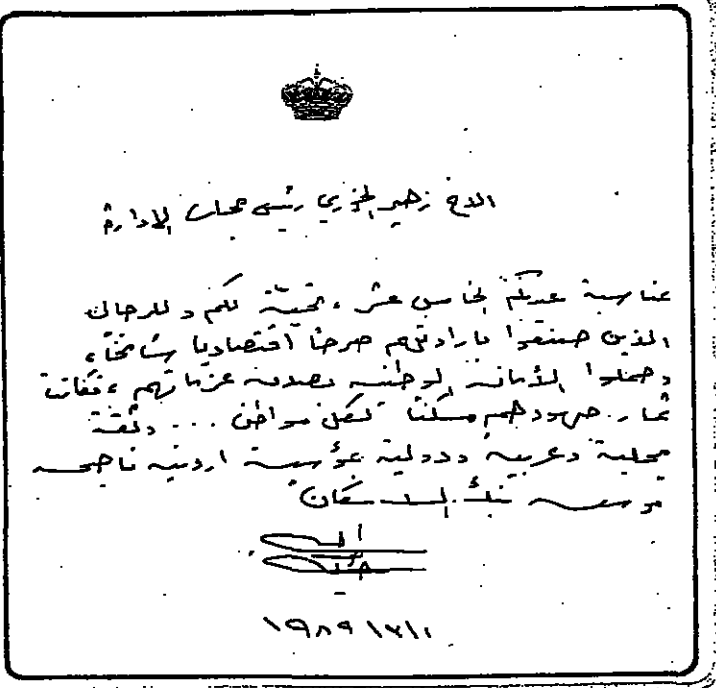 الاخ زهير الخوري رئيس مجلس الادارة
بمناسبة عيدكم الخامس عشر ، تحية لكم وللرجال
الذين صنعوا بارادتهم صرحاً اقتصادياً شامخاً ،
وحملوا الأمانة الوطنية بصدق عزماتهم ، فكانت
ثمار جهودهم مسكناً لكل مواطن ... وثقة
محلية وعربية ودولية بمؤسسة اردنية ناجحة
بنك الاسكان